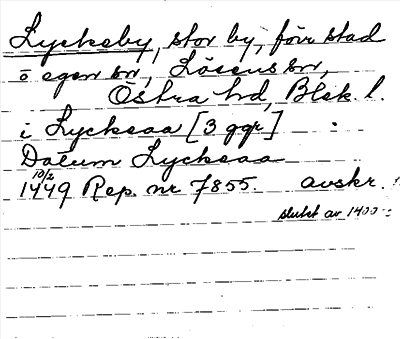 Lyckeby, stor by, förr stad
o egen sn, Lösens sn,
Östra hd, Blek. l.
i Lyckaaa [3 ggr]
Datum Lyckaaa
10/2
1449 Rep. nr 7855. avskr.
slutet av 1400-